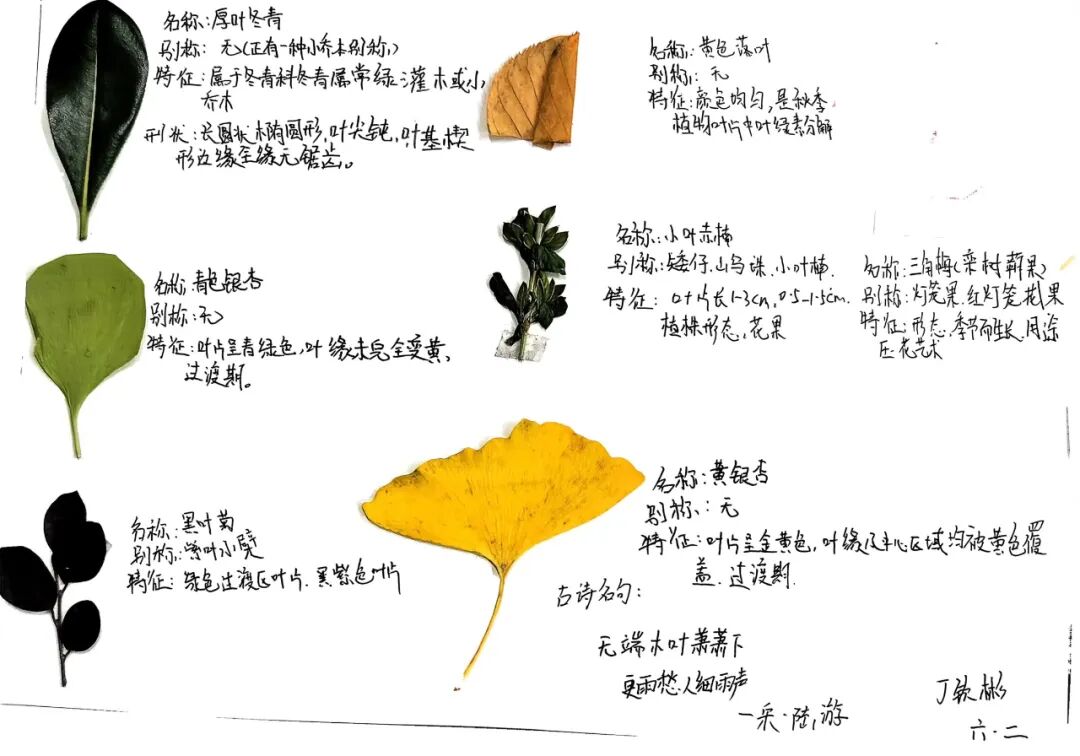 名称:厚叶冬青
别称: 无(正有一种小乔木别称,)
特征:属于冬青科冬青属常绿灌木或小
乔木
形状:长圆状椭圆形,叶尖钝,叶基楔
形边缘全缘无锯齿。
名称:黄色落叶
别称:无
特征:颜色均匀,是秋季
植物叶片中叶绿素分解
名称:青色银杏
别称:无
特征:叶片呈青绿色,叶缘未完全变黄,
过渡期。
名称:小叶赤楠
别称:矮仔.山乌珠.小叶楠.
特征: 叶片长1-3cm,0.5-1.5cm.
植株形态,花果
名称:三角梅(栾树蒴果)
别称:灯笼果.红灯笼.花果
特征:形态.季节而生长.用途
压花艺术
名称:黑叶菊
别称:紫叶小檗
特征:绿色过渡区叶片.黑紫色叶片
名称:黄银杏
别称:无
特征:叶片呈金黄色,叶缘及中心区域均被黄色覆
盖.过渡期.
古诗名句:
无端木叶萧萧下
更雨愁人细雨声
一宋·陆游
丁钦彬
六·二